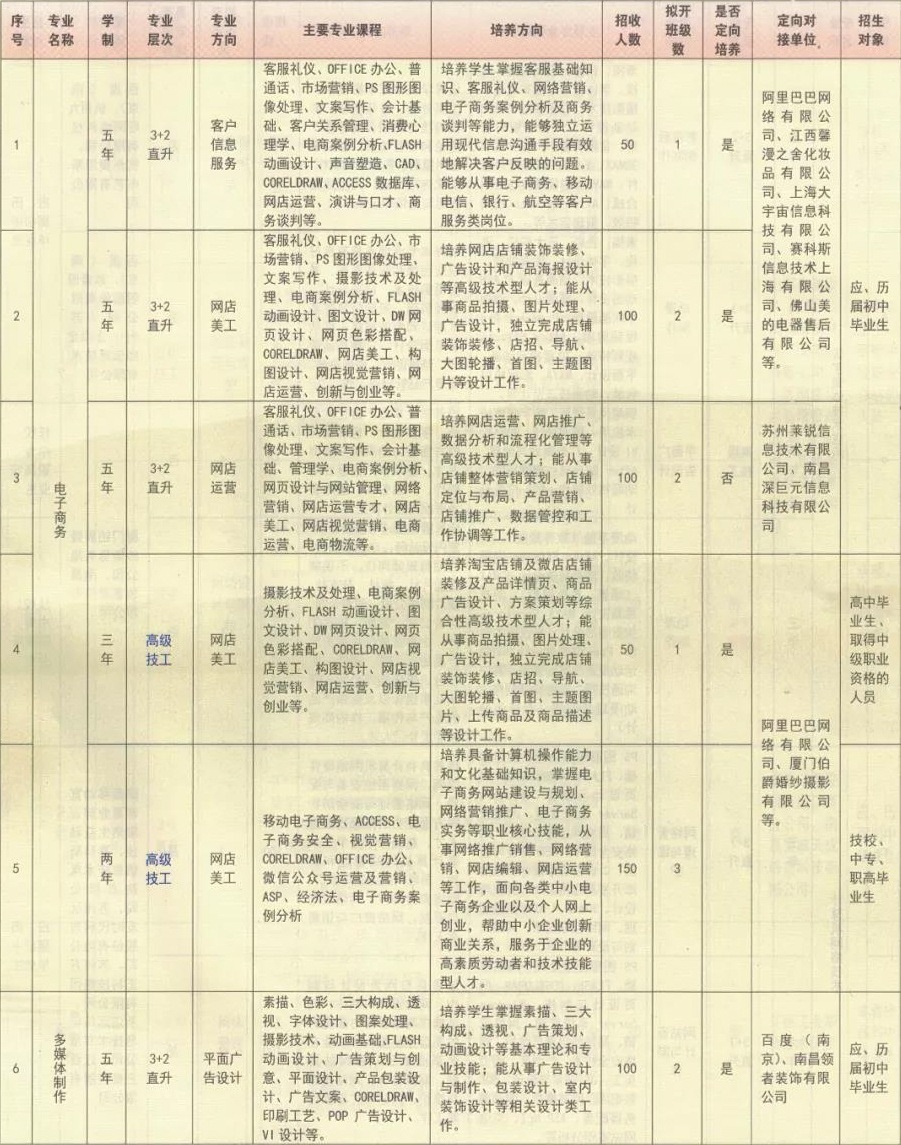 序号
专业名称
学制
专业层次
专业方向
主要专业课程
培养方向
招收人数
拟开班级数
是否定向培养
定向对接单位
招生对象
1
五年
3+2
直升
客户
信息
服务
客服礼仪、OFFICE 办公、普
通话、市场营销、PS 图形图
像处理、文案写作、会计基
础、客户关系管理、消费心
理学、电商案例分析、FLASH
动画设计、声音塑造、CAD、
CORELDRAW、ACCESS 数据库、
网店运营、演讲与口才、商
务谈判等。
培养学生掌握客服基础知
识、客服礼仪、网络营销、
电子商务案例分析及商务
谈判等能力，能够独立运
用现代信息沟通手段有效
地解决客户反映的问题。
能够从事电子商务、移动
电信、银行、航空等客户
服务类岗位。
50
1
是
阿里巴巴网
络有限公
司、江西馨
漫之舍化妆
品有限公
司、上海大
宇宙信息科
技有限公
司、赛科斯
信息技术上
海有限公
司、佛山美
的电器售后
有限公司
等。
应、历
届初中
毕业生
2
五年
3+2
直升
网店
美工
客服礼仪、OFFICE 办公、市
场营销、PS 图形图像处理、
文案写作、摄影技术及处
理、电商案例分析、FLASH
动画设计、图文设计、DW 网
页设计、网页色彩搭配、
CORELDRAW、网店美工、构
图设计、网店视觉营销、网
店运营、创新与创业等。
培养网店店铺装饰装修、
广告设计和产品海报设计
等高级技术型人才；能从
事商品拍摄、图片处理、
广告设计，独立完成店铺
装饰装修、店招、导航、
大图轮播、首图、主题图
片等设计工作。
100
2
是
电子商务
3
五年
3+2
直升
网店
运营
客服礼仪、OFFICE 办公、普
通话、市场营销、PS 图形图
像处理、文案写作、会计基
础、管理学、电商案例分析、
网页设计与网站管理、网络
营销、网店运营专才、网店
美工、网店视觉营销、电商
运营、电商物流等。
培养网店运营、网店推广、
数据分析和流程化管理等
高级技术型人才；能从事
店铺整体营销策划、店铺
定位与布局、产品营销、
店铺推广、数据管控和工
作协调等工作。
100
2
否
苏州莱锐信
息技术有限
公司、南昌
深巨元信息
科技有限公
司
4
三年
高级
技工
网店
美工
摄影技术及处理、电商案例
分析、FLASH 动画设计、图
文设计、DW 网页设计、网页
色彩搭配、CORELDRAW、网
店美工、构图设计、网店视
觉营销、网店运营、创新与
创业等。
培养淘宝店铺及微店店铺
装修及产品详情页、商品
广告设计、方案策划等综
合性高级技术型人才；能
从事商品拍摄、图片处理、
广告设计，独立完成店铺
装饰装修、店招、导航、
大图轮播、首图、主题图
片、上传商品及商品描述
等设计工作。
50
1
是
阿里巴巴网
络有限公
司、厦门伯
爵婚纱摄影
有限公司
等。
高中毕
业生、
取得中
级职业
资格的
人员
5
两年
高级
技工
网店
美工
移动电子商务、ACCESS、电
子商务安全、视觉营销、
CORELDRAW、OFFICE 办公、
微信公众号运营及营销、
ASP、经济法、电子商务案
例分析
培养具备计算机操作能力
和文化基础知识，掌握电
子商务网站建设与规划、
网络营销推广、电子商务
实务等职业核心技能，从
事网络推广销售、网络营
销、网店编辑、网店运营
等工作，面向各类中小电
子商务企业以及个人网上
创业，帮助中小企业创新
商业关系，服务于企业的
高素质劳动者和技术技能
型人才。
150
3
技校、
中专、
职高毕
业生
6
多媒体制作
五年
3+2
直升
平面广
告设计
素描、色彩、三大构成、透
视、字体设计、图案处理、
摄影技术、动画基础、FLASH
动画设计、广告策划与创
意、平面设计、产品包装设
计、广告文案、CORELDRAW、
印刷工艺、POP 广告设计、
VI 设计等。
培养学生掌握素描、三大
构成、透视、广告策划、
动画设计等基本理论和专
业技能；能从事广告设计
与制作、包装设计、室内
装饰设计等相关设计类工
作。
100
2
是
百度（南
京）、南昌领
者装饰有限
公司
应、历
届初中
毕业生